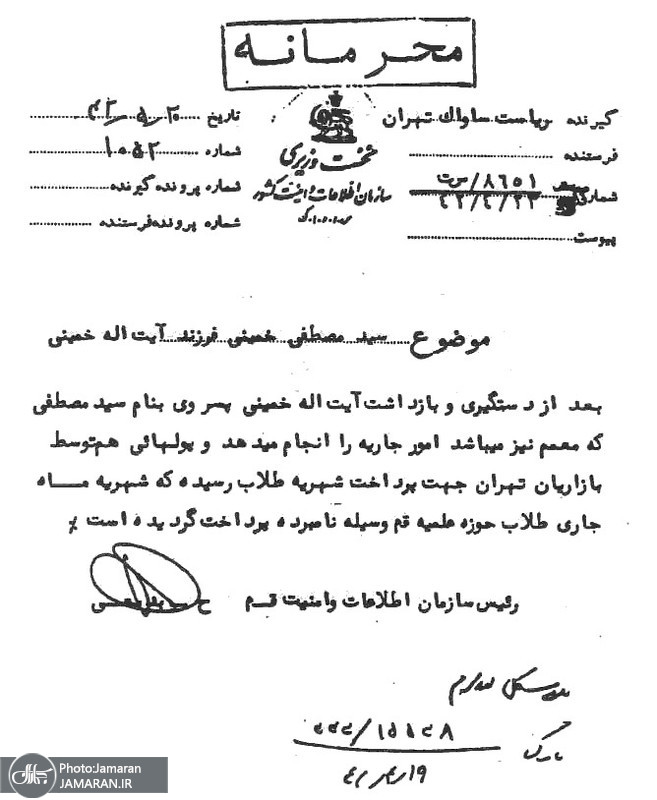 محرمانه
گیرنده ریاست ساواک تهران
فرستنده
شماره ۸۶۵۱/س‌ت
۴۲/۴/۲۳
پیوست
نخست وزیری
سازمان اطلاعات و امنیت کشور
تاریخ ۴۲/۵/۲۰
شماره ۱۰۵۲
شماره پرونده گیرنده
شماره پرونده فرستنده
موضوع سید مصطفی خمینی فرزند آیت اله خمینی
بعد از دستگیری و بازداشت آیت اله خمینی پسر وی بنام سید مصطفی
که معمم نیز میباشد امور جاریه را انجام میدهد و پولهائی هم توسط
بازاریان تهران جهت پرداخت شهریه طلاب رسیده که شهریه مـاه
جاری طلاب حوزه علمیه قم وسیله نامبرده پرداخت گردیده است
رئیس سازمان اطلاعات و امنیت قـم
Photo:Jamaran
JAMARAN.IR